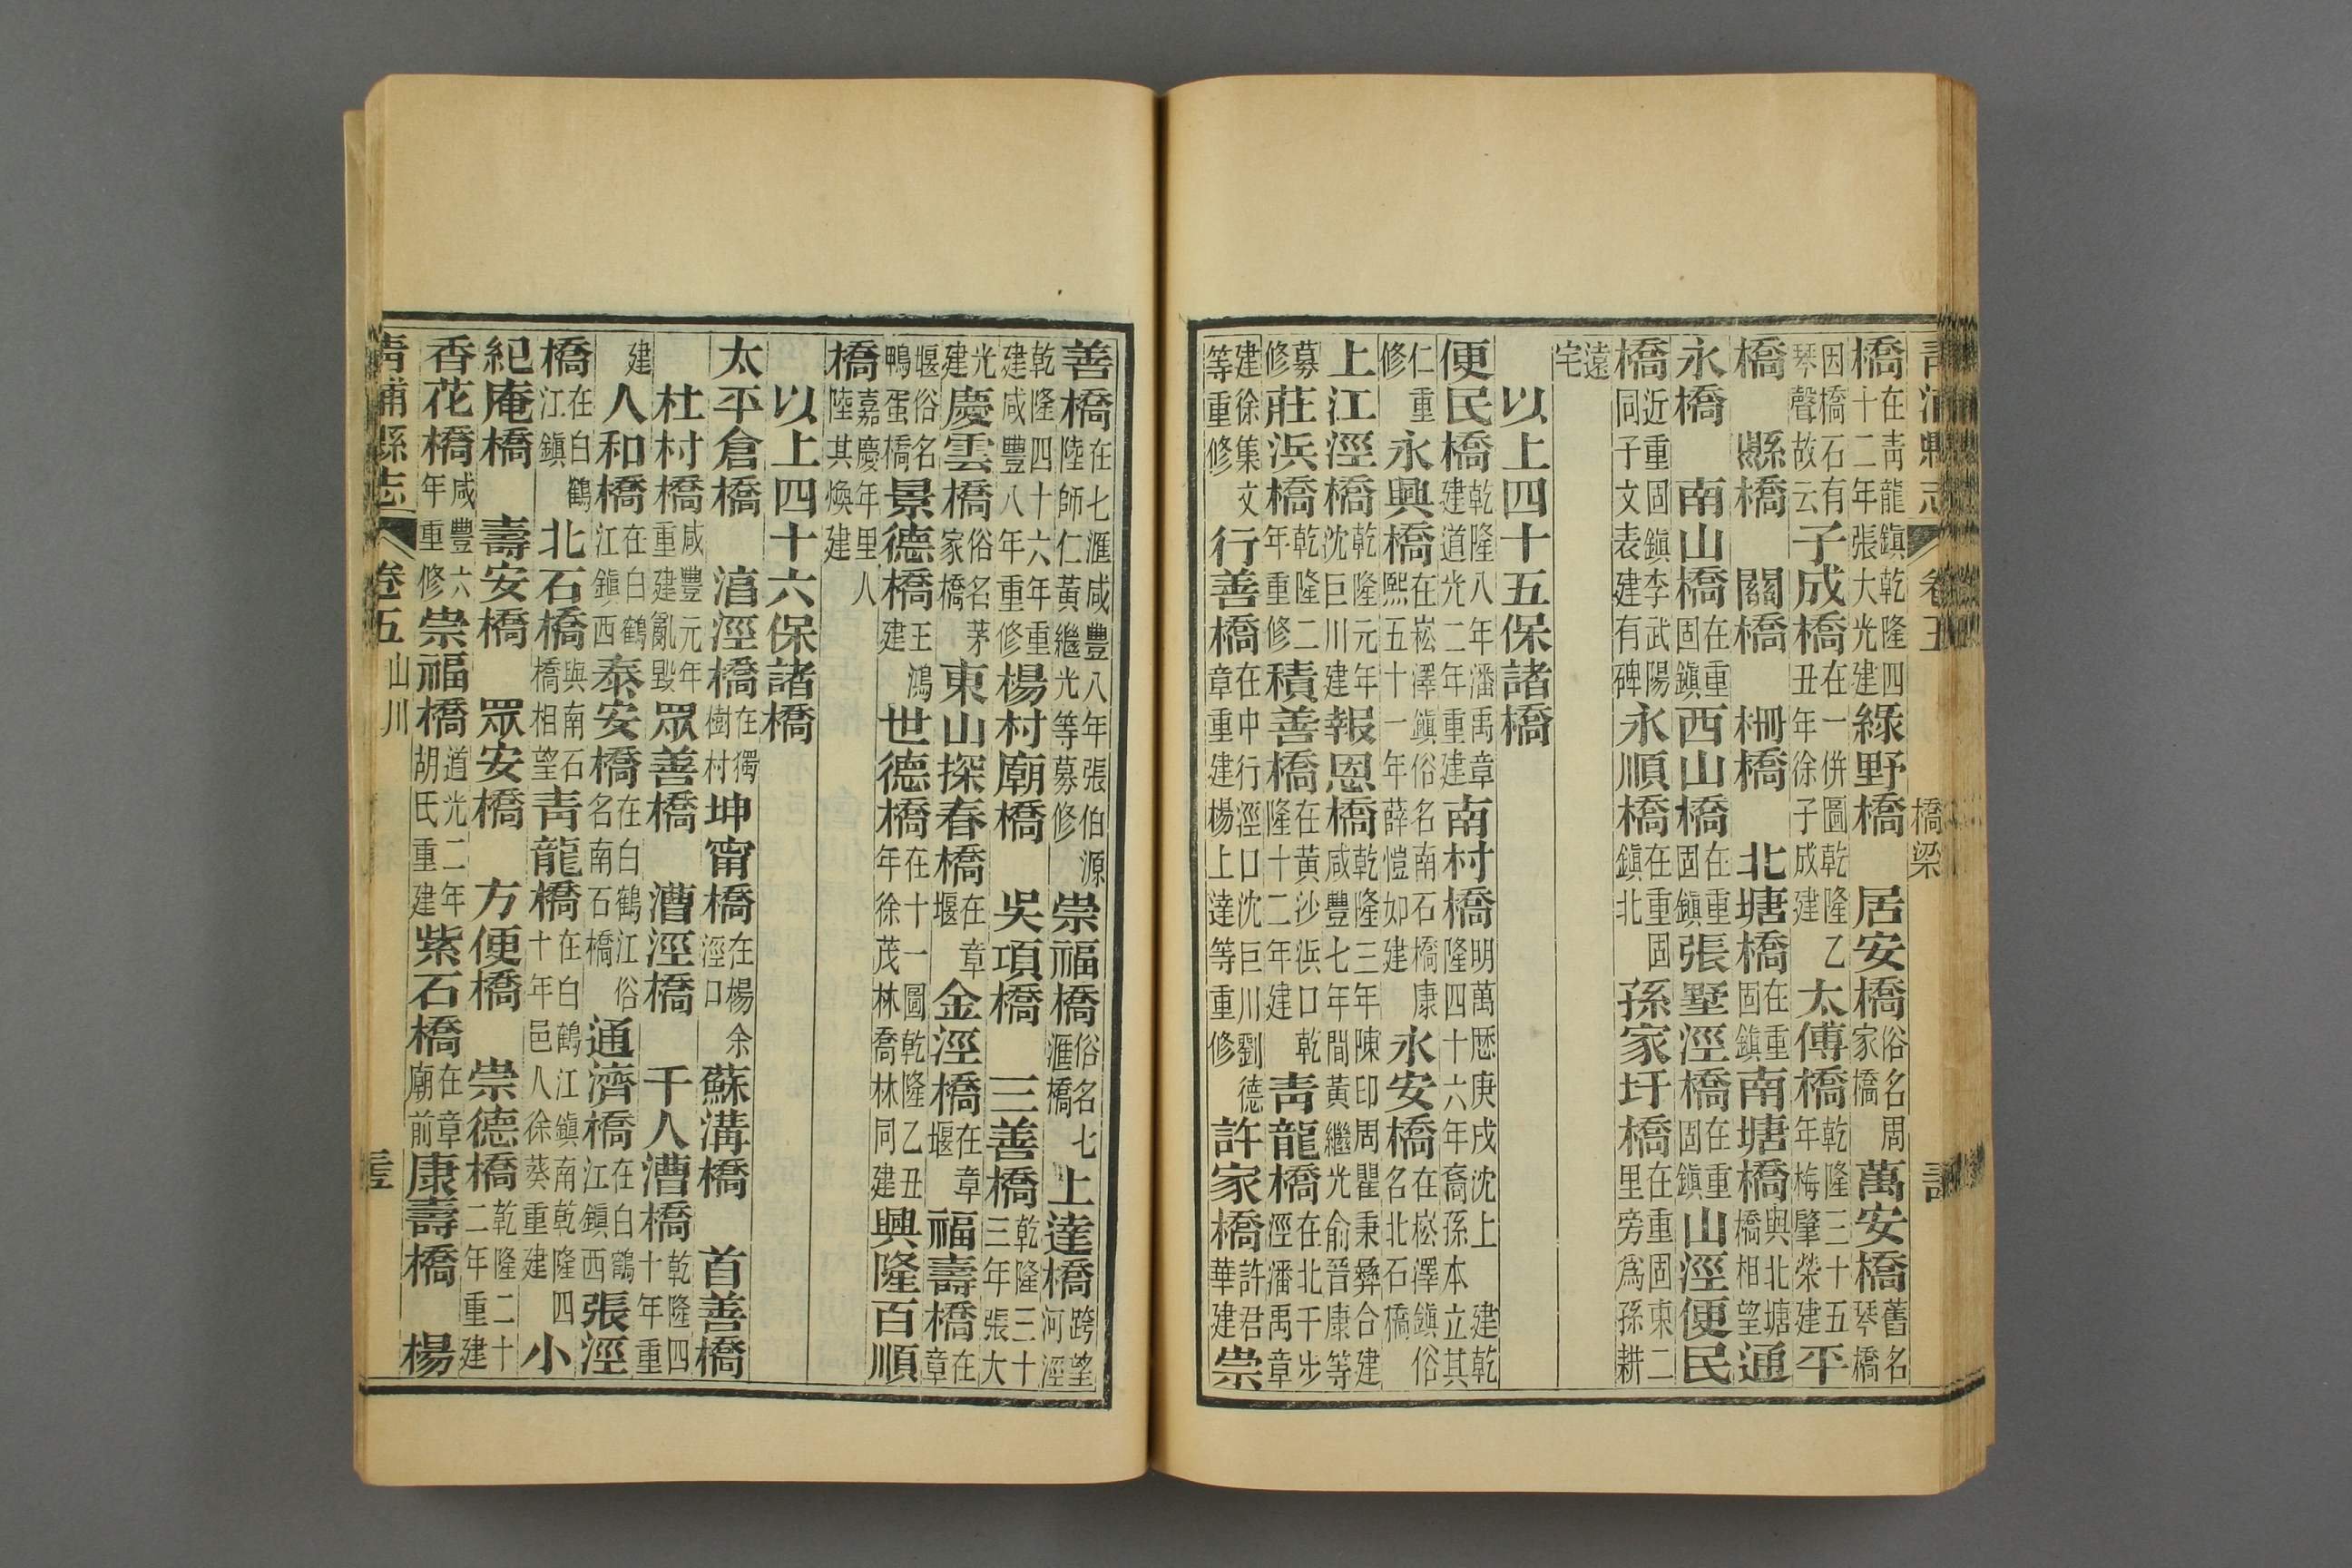 青浦縣志 卷五 橋梁
橋在青龍鎮乾隆四十二年張大光建綠野橋 居安橋俗名周家橋萬安橋舊名琴橋
因橋石有琴聲故云子成橋在一併圖乾隆乙丑年徐子成建太傅橋乾隆三十五年梅肇榮建平
橋 縣橋 關橋 柵橋 北塘橋在重固鎮南塘橋與北塘橋相望通
永橋 南山橋在重固鎮西山橋在重固鎮張墅涇橋在重固鎮山涇便民
橋近重固鎮李武陽同子文表建有碑永順橋在重固鎮北孫家圩橋在重固東二里旁爲孫耕
遠宅
以上四十五保諸橋
便民橋乾隆八年潘禹章建道光二年重建南村橋明萬歴庚戌沈上 建乾隆四十六年裔孫本立其
仁重修永興橋在崧澤鎮俗名南石橋康熙五十一年薛愷如建永安橋在崧澤鎮俗名北石橋
上江涇橋乾隆元年沈巨川建報恩橋乾隆三年陳印周瞿秉彝合建咸豐七年間黃繼光俞晉康等
募修莊浜橋乾隆二年重修積善橋在黃沙浜口乾隆十二年建青龍橋在北干步涇潘禹章
建徐集文等重修行善橋在中行涇口沈巨川劉德章重建楊上達等重修許家橋許君華建崇
善橋在七滙咸豐八年張伯源陸師仁黃繼光等募修崇福橋俗名七滙橋上達橋跨望河涇
乾隆四十六年重建咸豐八年重修楊村廟橋 吳項橋 三善橋乾隆三十三年張大
光建慶雲橋俗名茅家橋東山探春橋在章堰金涇橋在章堰福壽橋在章
堰俗名鴨蛋橋景德橋王鴻建世德橋在十一圖乾隆乙丑年徐茂林喬林同建興隆百順
橋嘉慶年里人陸其煥建
以上四十六保諸橋
太平倉橋 淐涇橋在獨樹村坤甯橋在楊余涇口蘇溝橋 首善橋
杜村橋咸豐元年重建亂毀眾善橋 漕涇橋 千人漕橋乾隆四十年重
建人和橋在白鶴江鎮西泰安橋在白鶴江俗名南石橋通濟橋在白鶴江鎮西張涇
橋在白鶴江鎮北石橋與南石橋相望青龍橋在白鶴江鎮南乾隆四十年邑人徐葵重建小
紀庵橋 壽安橋 眾安橋 方便橋 崇德橋乾隆二十二年重建
香花橋咸豐六年重修崇福橋道光二年胡氏重建紫石橋在章廟前康壽橋 楊
青浦縣志 卷五 山川